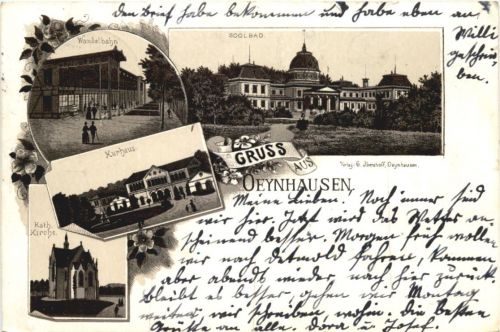 den Brief ich bekommen und habe eben an
Willi
geschrie
ben.
Wandelbahn
SOOLBAD.
Kurhaus.
Kath.
Kirche.
GRUSS
AUS
OEYNHAUSEN.
Verlag G. Oeynhausen.
Meine Lieben! Noch immer sind
wir hier. Jetzt wird das Wetter an
scheinend besser. Morgen früh wollen
wir nach Detmold fahren, kommen
aber abends wieder nach hier zurück
bleibt es besser gehen wir Montag
weiter, wir schreiben, wohin. Die besten
Grüße an alle. Dora u.